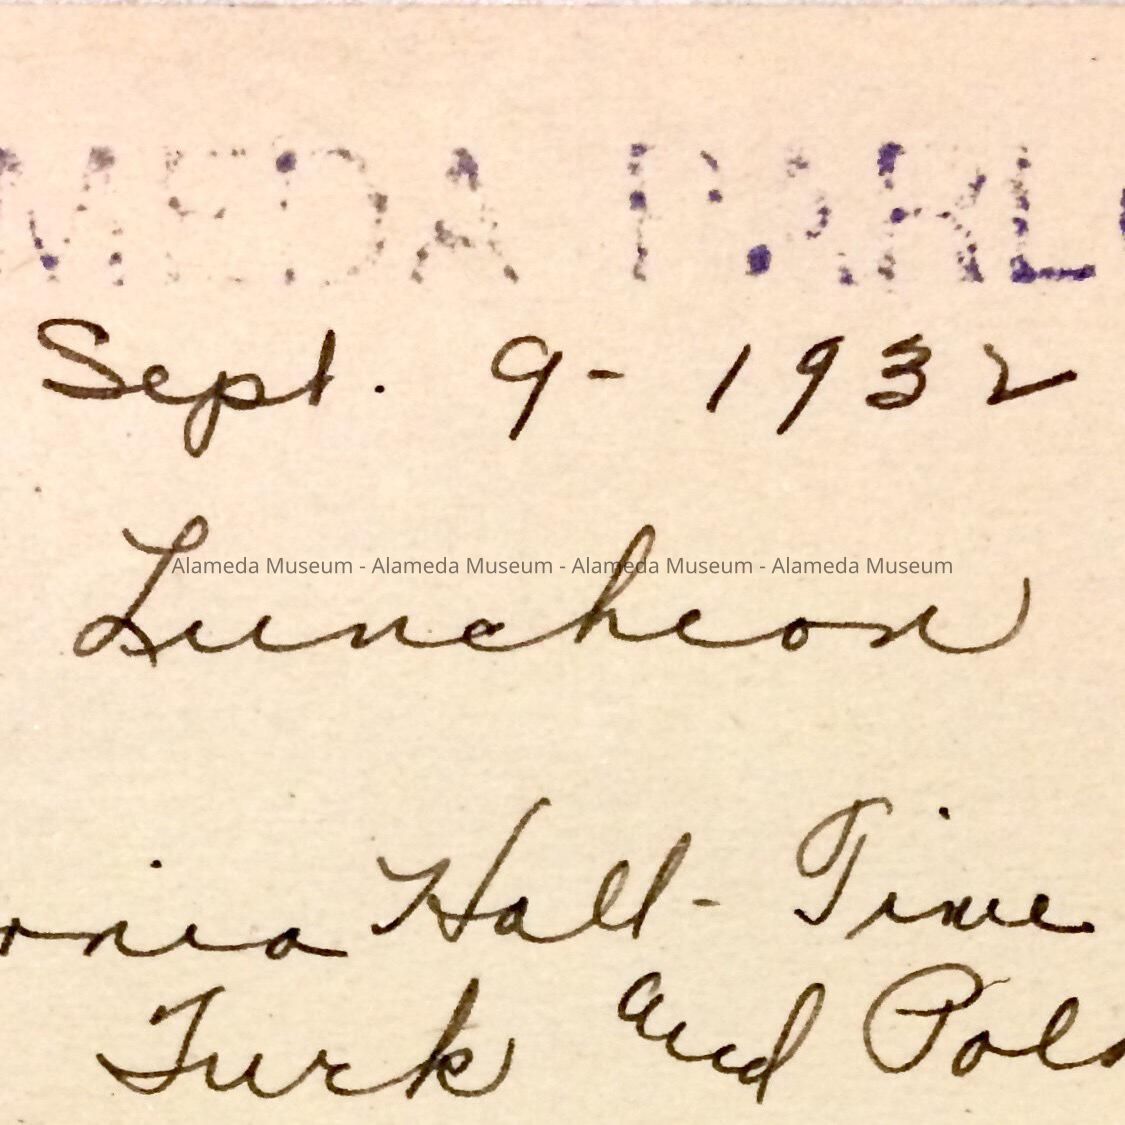 MEDA PARLO
Sept. 9 - 1932
Luncheon
Alameda Museum - Alameda Museum - Alameda Museum - Alameda Museum
ornia Hall - Time
Turk and Polk